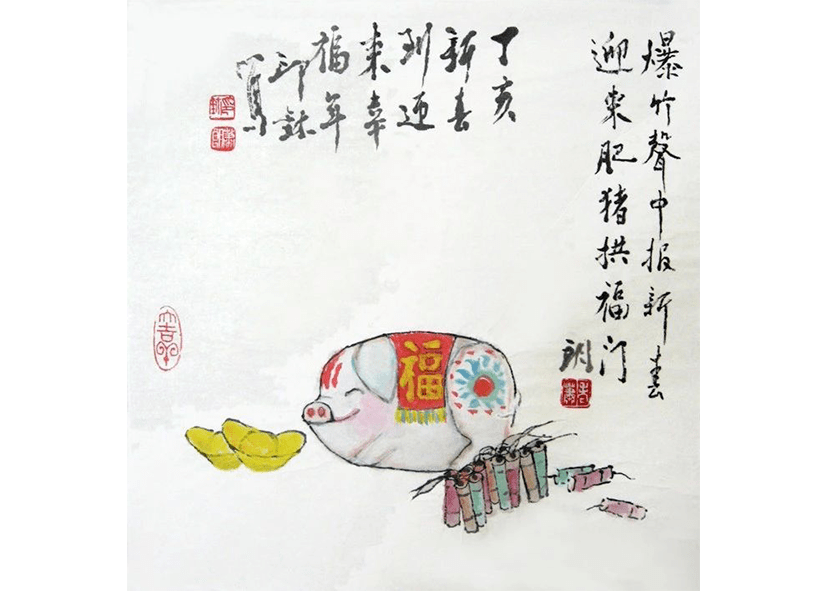 爆竹聲中报新春
迎来肥猪拱福门
丁亥
新春
到迎
来幸
福年
福